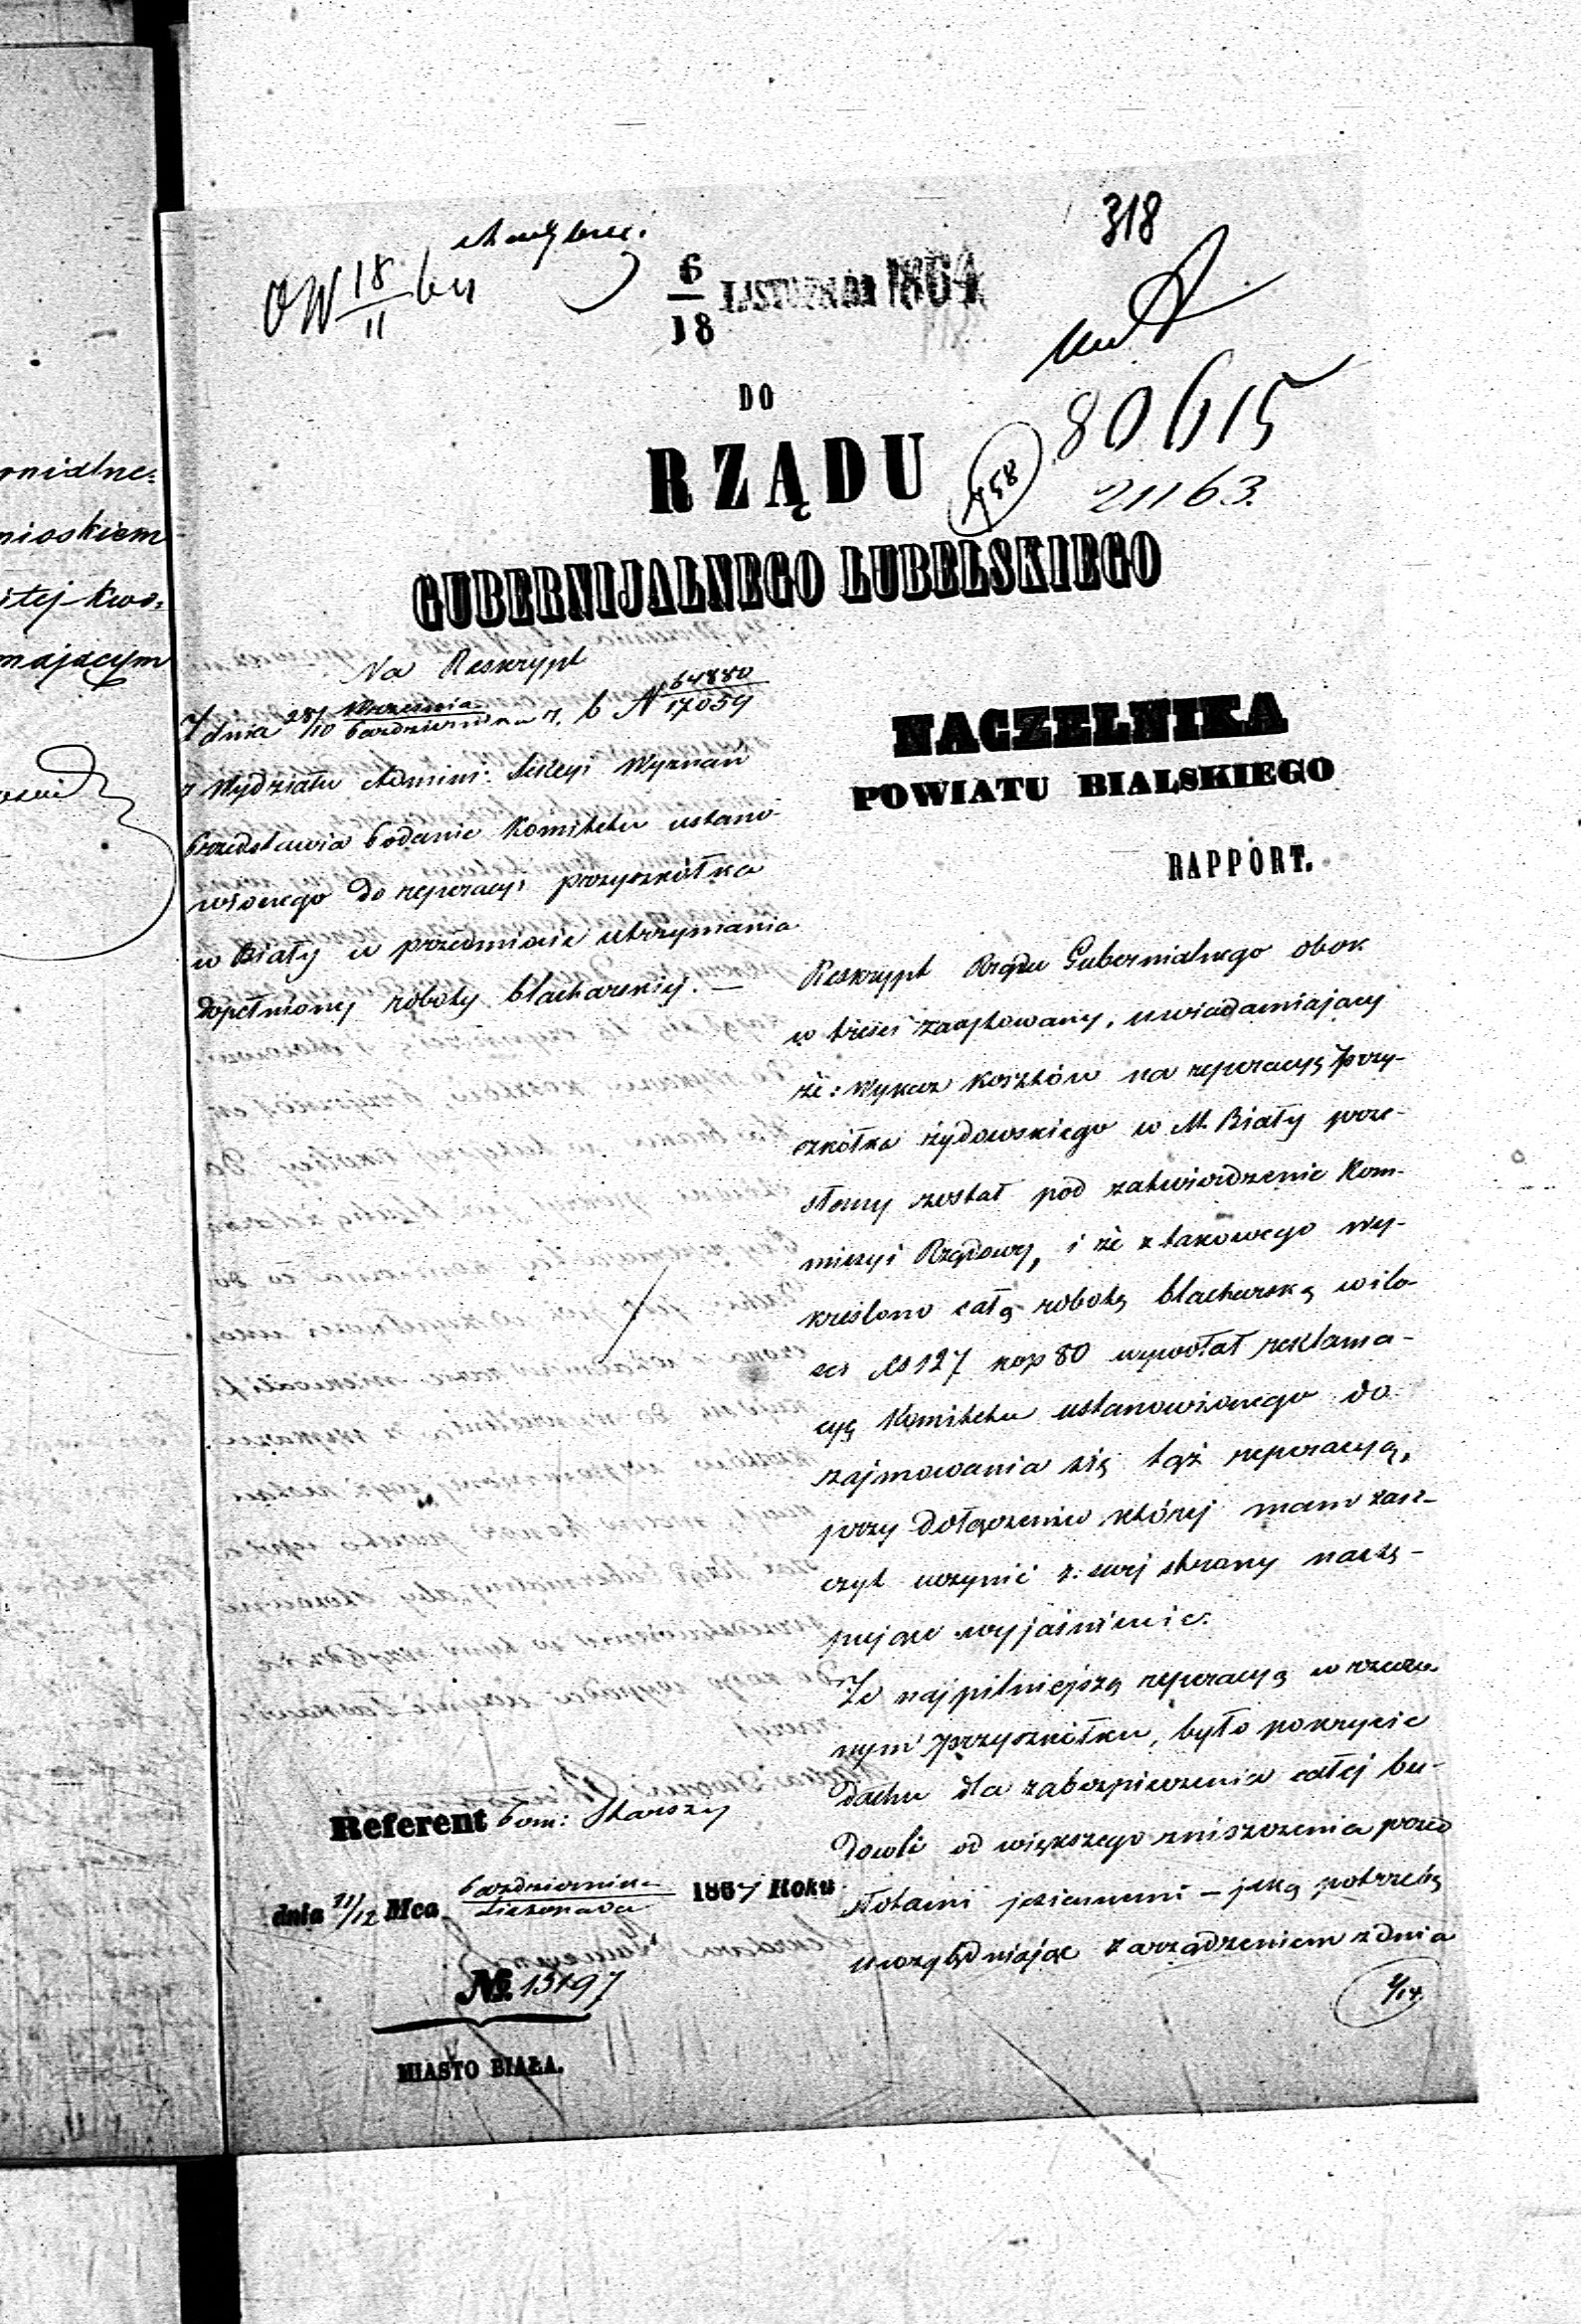 318
OW 18/11 64
6/18 LISTOPADA 1864
80615
21163.
758
DO
RZĄDU
GUBERNIJALNEGO LUBELSKIEGO
Na Reskrypt
Z dnia 28/10 Września/Października r. b N 64880/17059
z Wydziału Admini: Sekcyi Wyznań
Przedstawia Podanie Komitetu ustano-
wionego do reperacyi przyszkółka
w Biały w przedmiocie utrzymania
dopełnionej roboty blacharskiej. —
NACZELNIKA
POWIATU BIALSKIEGO
RAPPORT.
Reskrypt Rządu Gubernialnego obok
w treści zacytowany, uwiadamiający
że: Wykaz kosztów na reperacyą przy-
szkółka żydowskiego w M. Biały prze-
słany został pod zatwierdzenie Kom-
missyi Rządowej, i że z takowego wy-
kreślono całą robotę blacharską w ilo-
ści Rs 127 kop 80 wywołał reklama-
cyę Komitetu ustanowionego do
zajmowania się tąż reperacyą,
przy dołączeniu której mam zasz-
czyt uczynić z swej strony nastę-
pujące wyjaśnienie.
Że najpilniejszą reperacyą w rzeczo-
nym przyszkółku, było pokrycie
dachu dla zabezpieczenia całej bu-
dowli od większego zniszczenia przed
słotami jesiennemi — jaką potrzebę
uwzględniając zarządzeniem z dnia
Referent Pom: Starszy
dnia 31/12 Mca Października/Listopada 1864 Roku
No. 13197
MIASTO BIAŁA.
rnialne-
nioskiem
stej kwo-
mającym